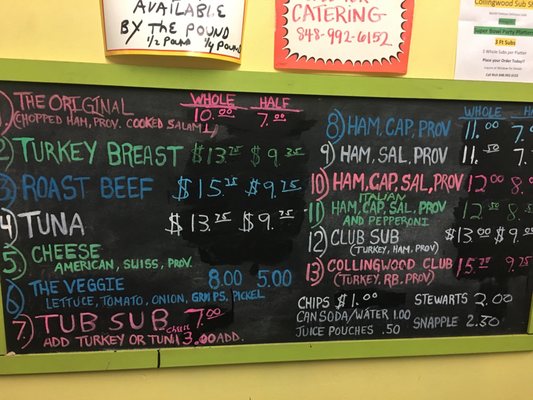 AVAILABLE
BY THE POUND
1/2 POUND 1/4 POUND
CATERING
848-992-6152
Collingwood Sub Sh
Super Bowl Party Platter
3 Ft Subs
2 Whole Subs per Platter
Place your Order Today!
WHOLE HALF
1) THE ORIGINAL 10.00 7.00
(CHOPPED HAM, PROV. COOKED SALAMI)
2) TURKEY BREAST $13.25 $9.25
3) ROAST BEEF $15.25 $9.25
4) TUNA $13.25 $9.25
5) CHEESE
AMERICAN, SWISS, PROV.
6) THE VEGGIE 8.00 5.00
LETTUCE, TOMATO, ONION, GRN PS. PICKEL
7) TUB SUB Cheese 7.00
ADD TURKEY OR TUNA 3.00 ADD.
WHOLE HAL
8) HAM, CAP, PROV 11.00 7.
9) HAM, SAL, PROV 11.50 7.
10) HAM, CAP, SAL, PROV 12.00 8.
ITALIAN
11) HAM, CAP, SAL, PROV 12.50 8.
AND PEPPERONI
12) CLUB SUB $13.00 $9.
(TURKEY, HAM, PROV)
13) COLLINGWOOD CLUB 15.25 9.25
(TURKEY, RB. PROV)
CHIPS $1.00 STEWARTS 2.00
CAN SODA/WATER 1.00
JUICE POUCHES .50 SNAPPLE 2.50